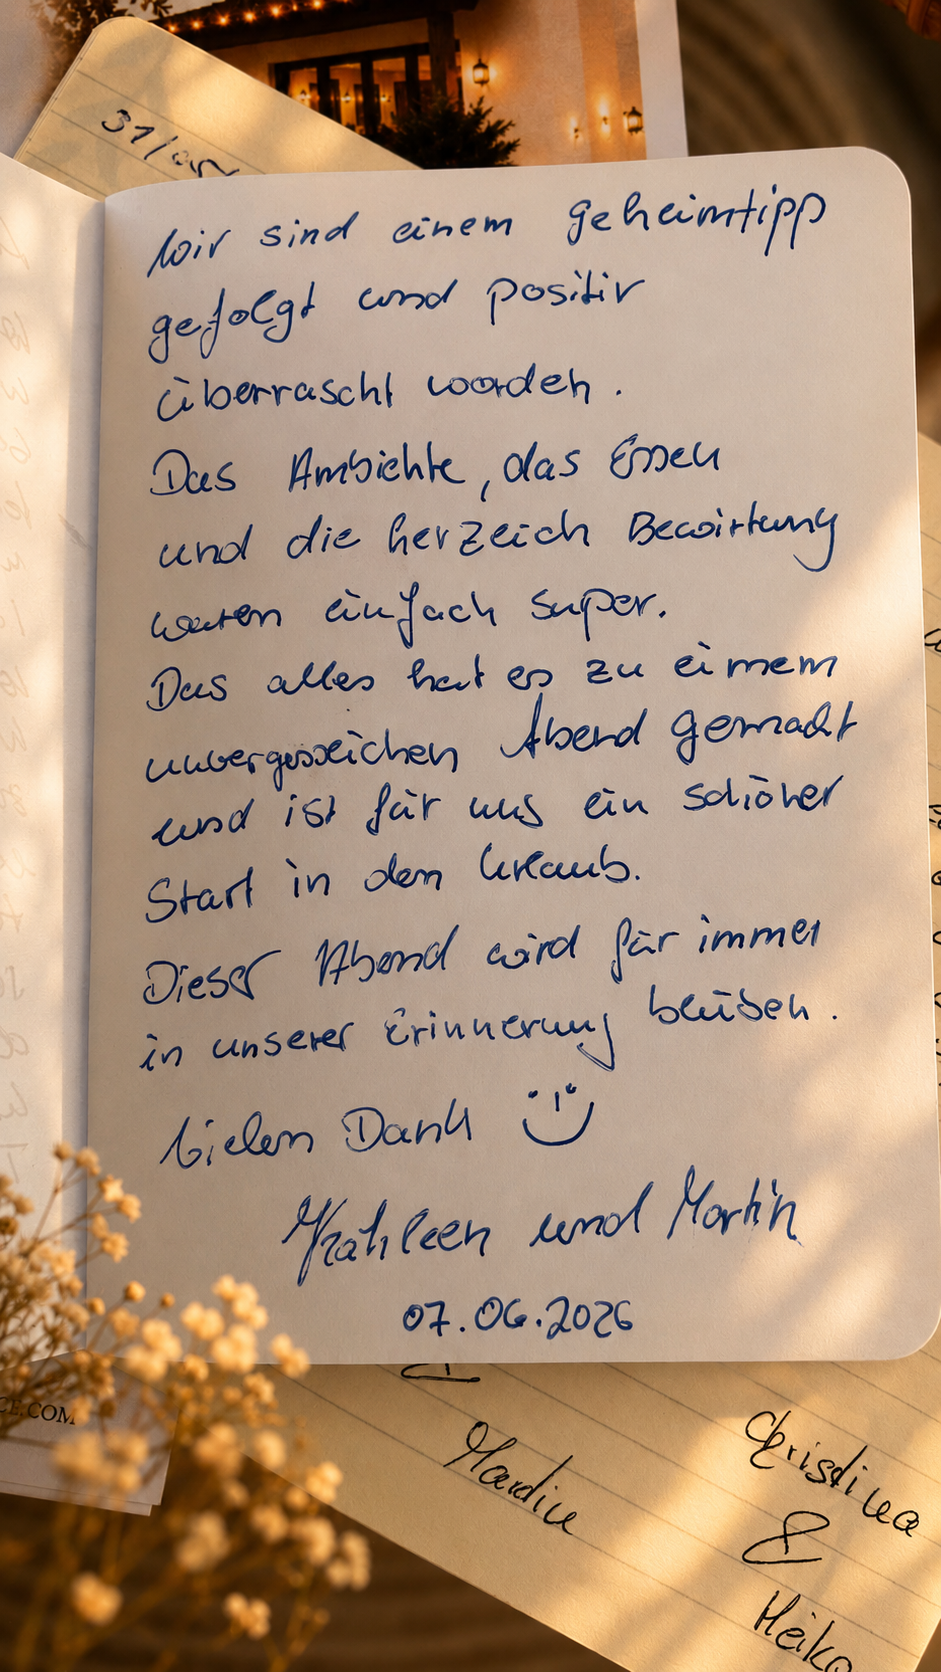 31/05/
Wir sind einem Geheimtipp
gefolgt und positiv
überrascht worden.
Das Ambiehte, das Essen
und die herzeich Bewirtung
waren einfach super.
Das alles hat es zu einem
unvergesseichen Abend gemacht
und ist für uns ein schöner
Start in den Urlaub.
Dieser Abend wird für immer
in unserer Erinnerung bleiben.
Vielen Dank
Kathleen und Martin
07.06.2026
CE.COM
Christina
&
Heiko